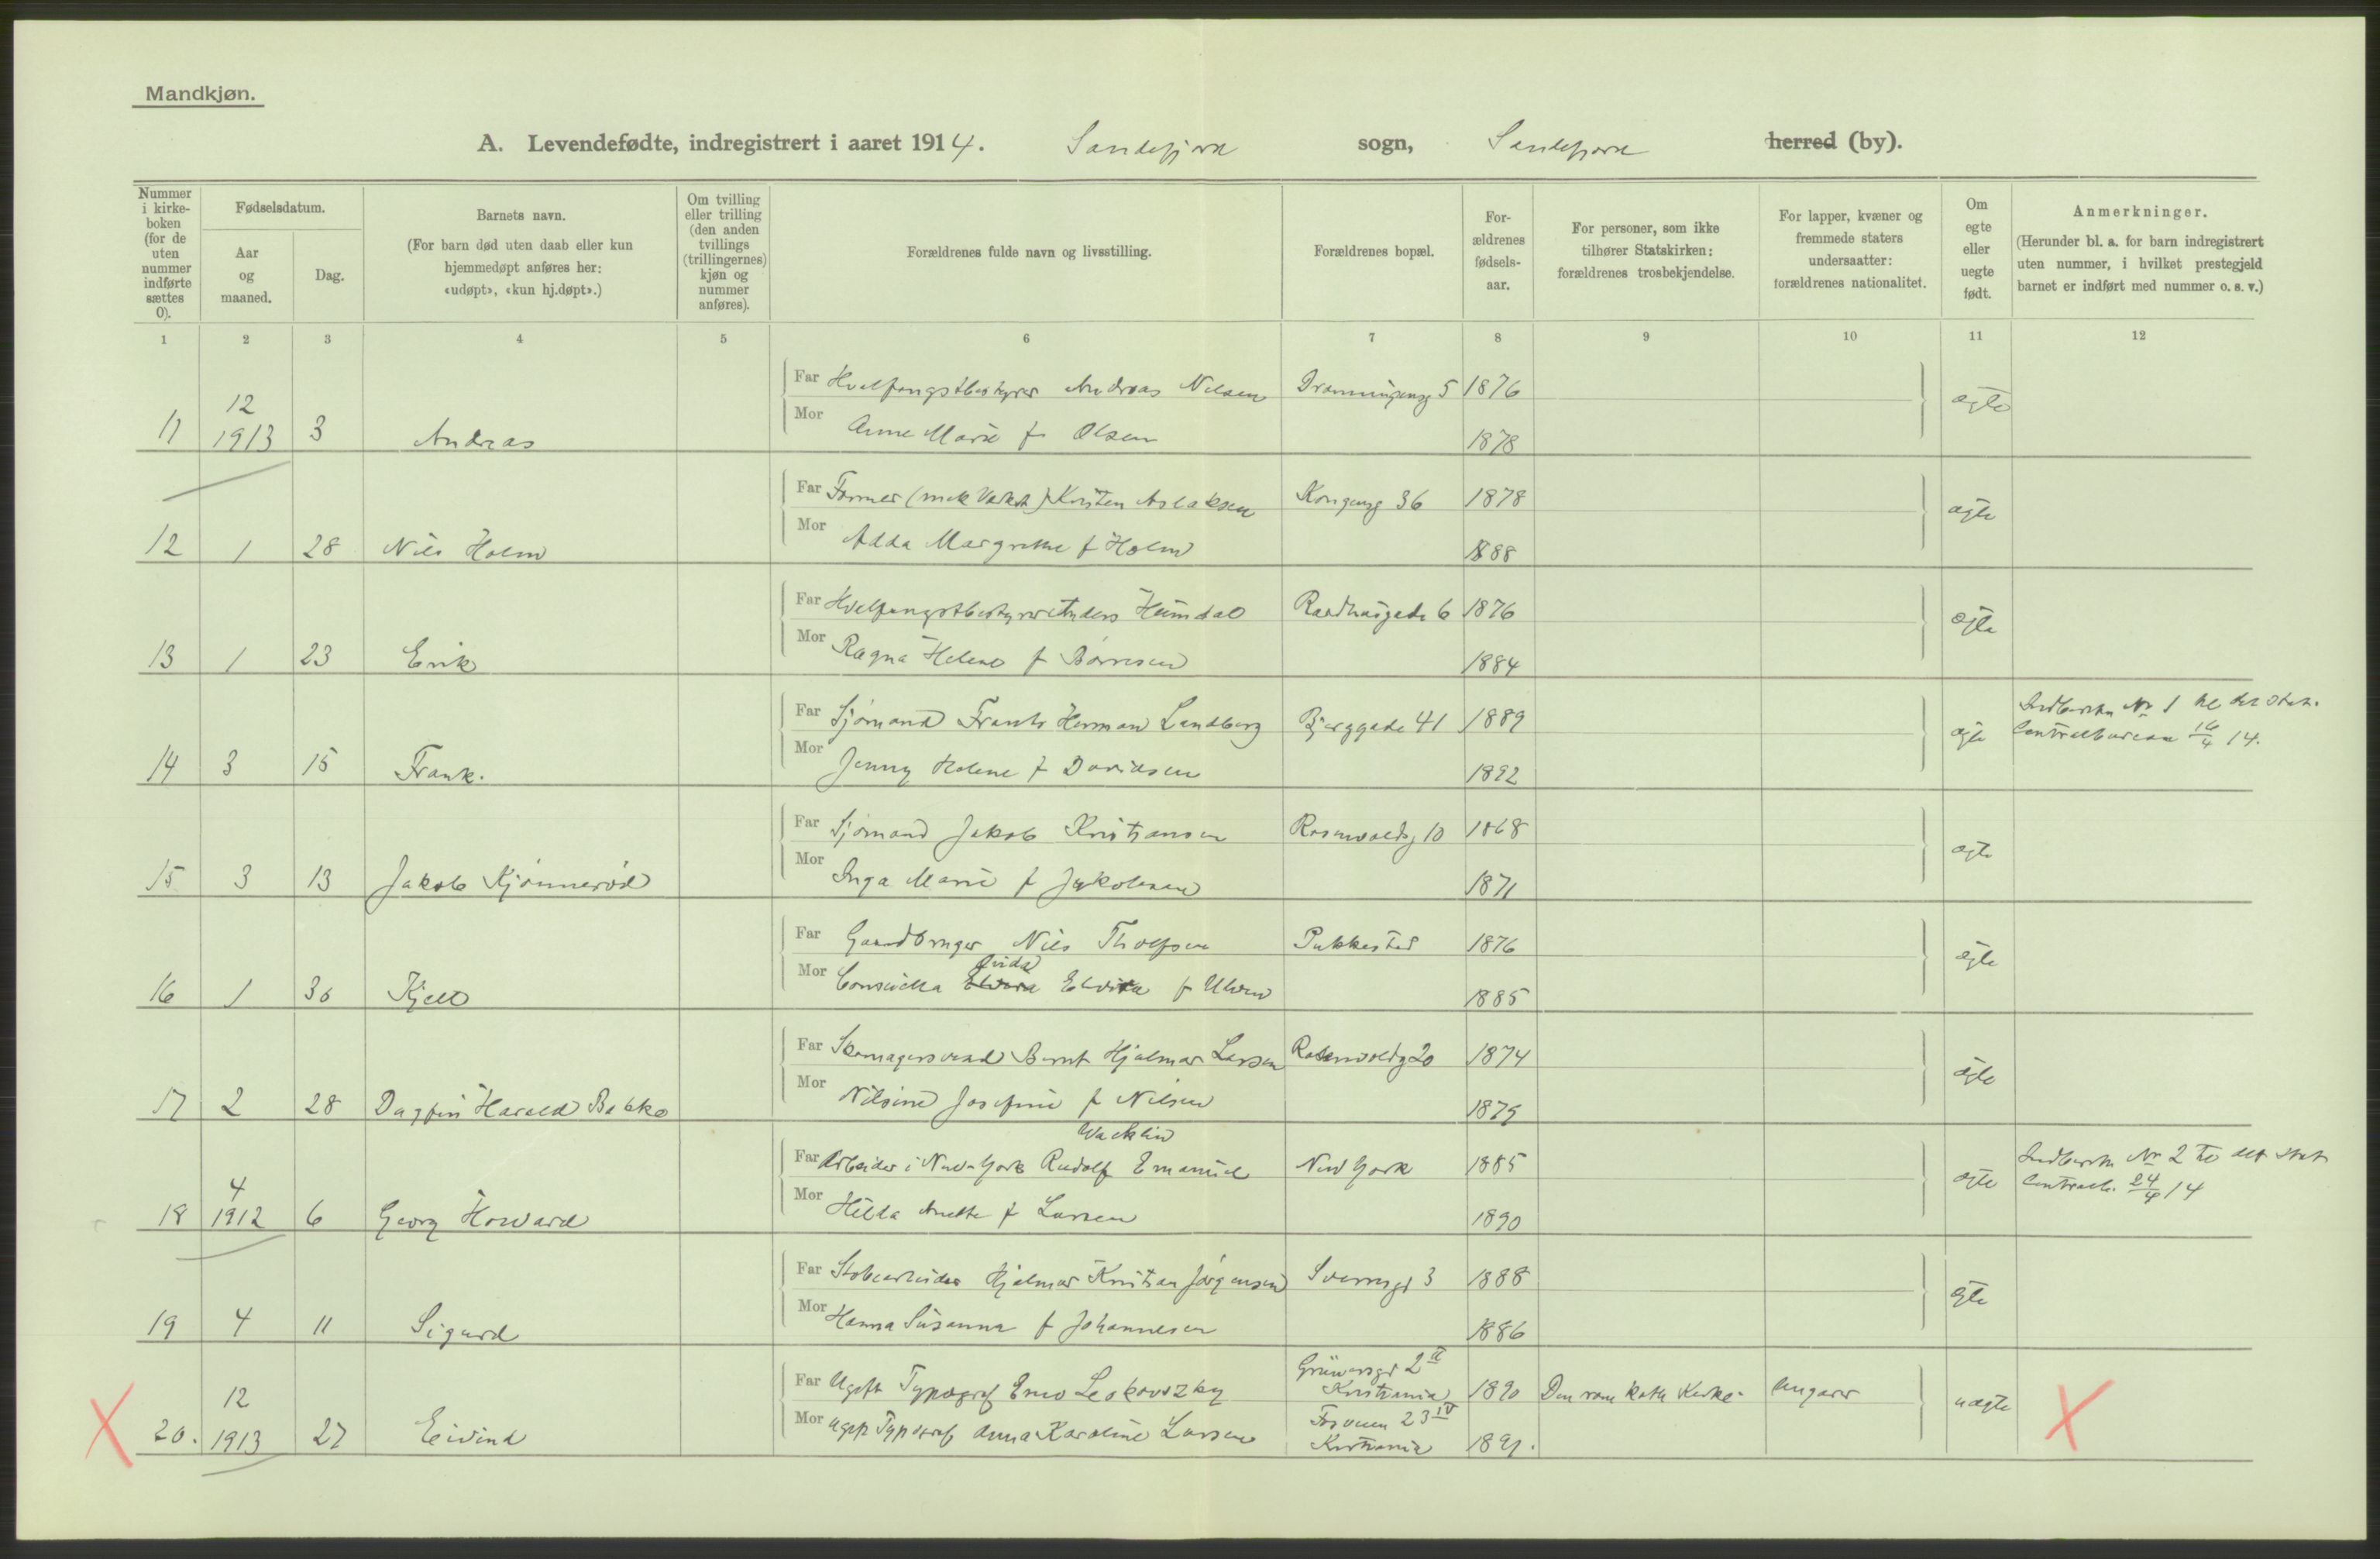 Mandkjøn.
A. Levendefødte, indregistrert i aaret 1914. Sandefjord sogn, Sandefjord herred (by).
Nummer i kirke-boken (for de uten nummer indførte sættes 0).
Fødselsdatum.
Aar og maaned.
Dag.
Barnets navn.
(For barn død uten daab eller kun hjemmedøpt anføres her: «udøpt», «kun hj.døpt».)
Om tvilling eller trilling (den anden tvillings (trillingernes) kjøn og nummer anføres).
Forældrenes fulde navn og livsstilling.
Forældrenes bopæl.
For-ældrenes fødsels-aar.
For personer, som ikke tilhører Statskirken: forældrenes trosbekjendelse.
For lapper, kvæner og fremmede staters undersaatter: forældrenes nationalitet.
Om egte eller uegte født.
Anmerkninger.
(Herunder bl. a. for barn indregistrert uten nummer, i hvilket prestegjeld barnet er indført med nummer o. s. v.)
1 2 3 4 5 6 7 8 9 10 11 12
Far Hvalfangstbestyrer Andreas Nilsen Dronningensg 5 1876 egte
11 12 1913 3 Andreas
Mor Anne Marie f Olsen 1878
Far Former (mek Værkst) Kristen Aslaksen Kongensg 36 1878 egte
12 1 28 Nils Holm
Mor Adda Margrethe f Holm 1888
Far Hvalfangstbestyrer Anders Heimdal Raadhusgade 6 1876 egte
13 1 23 Erik
Mor Ragna Helene f Børresen 1884
Far Sjømand Frants Herman Lundberg Bjerggade 41 1889 egte Indberettet Nr 1 til det stat. Centralbureau 16/4 14.
14 3 15 Frank.
Mor Jenny Helene f Davidsen 1892
Far Sjømand Jakob Kristiansen Rosenvoldsg 10 1868 egte
15 3 13 Jakob Kjønnerød
Mor Inga Marie f Jakobsen 1871
Far Gaardbruger Nils Tholfsen Pukkestad 1876 egte
16 1 30 Kjell
Mor Elvira f Ulven 1885
Far Skomagersvend Bernt Hjalmar Larsen Rosenvoldsg 20 1874 egte
17 2 28 Dagfin Harald Bakke
Mor Nilsine Josefine f Nilsen 1875
Wacklin
Far Arbeider i New-York Rudolf Emanuel New York 1885 egte Indberettet Nr 2 til det stat Centralb. 24/4 14
18 4 1912 6 Georg Howard
Mor Hilda Anette f Larsen 1890
Far Hjalmar Kristian Jørgensen Sverresgt 3 1888 egte
19 4 11 Sigurd
Mor Hanna Susanna f Johannesen 1886
Far Ugift Typograf Grünersgt 2 II Kristiania 1890 Den rom kath Kirke ungarer uegte
20. 12 1913 27 Eivind
Mor ugift Typograf Anna Karoline Larsen 23 IV Kristiania 1891.